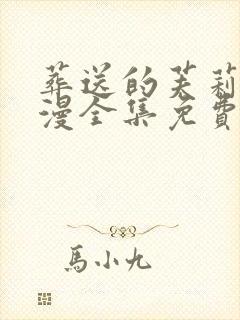 葬送的芙莉
漫全集免費
馬小九